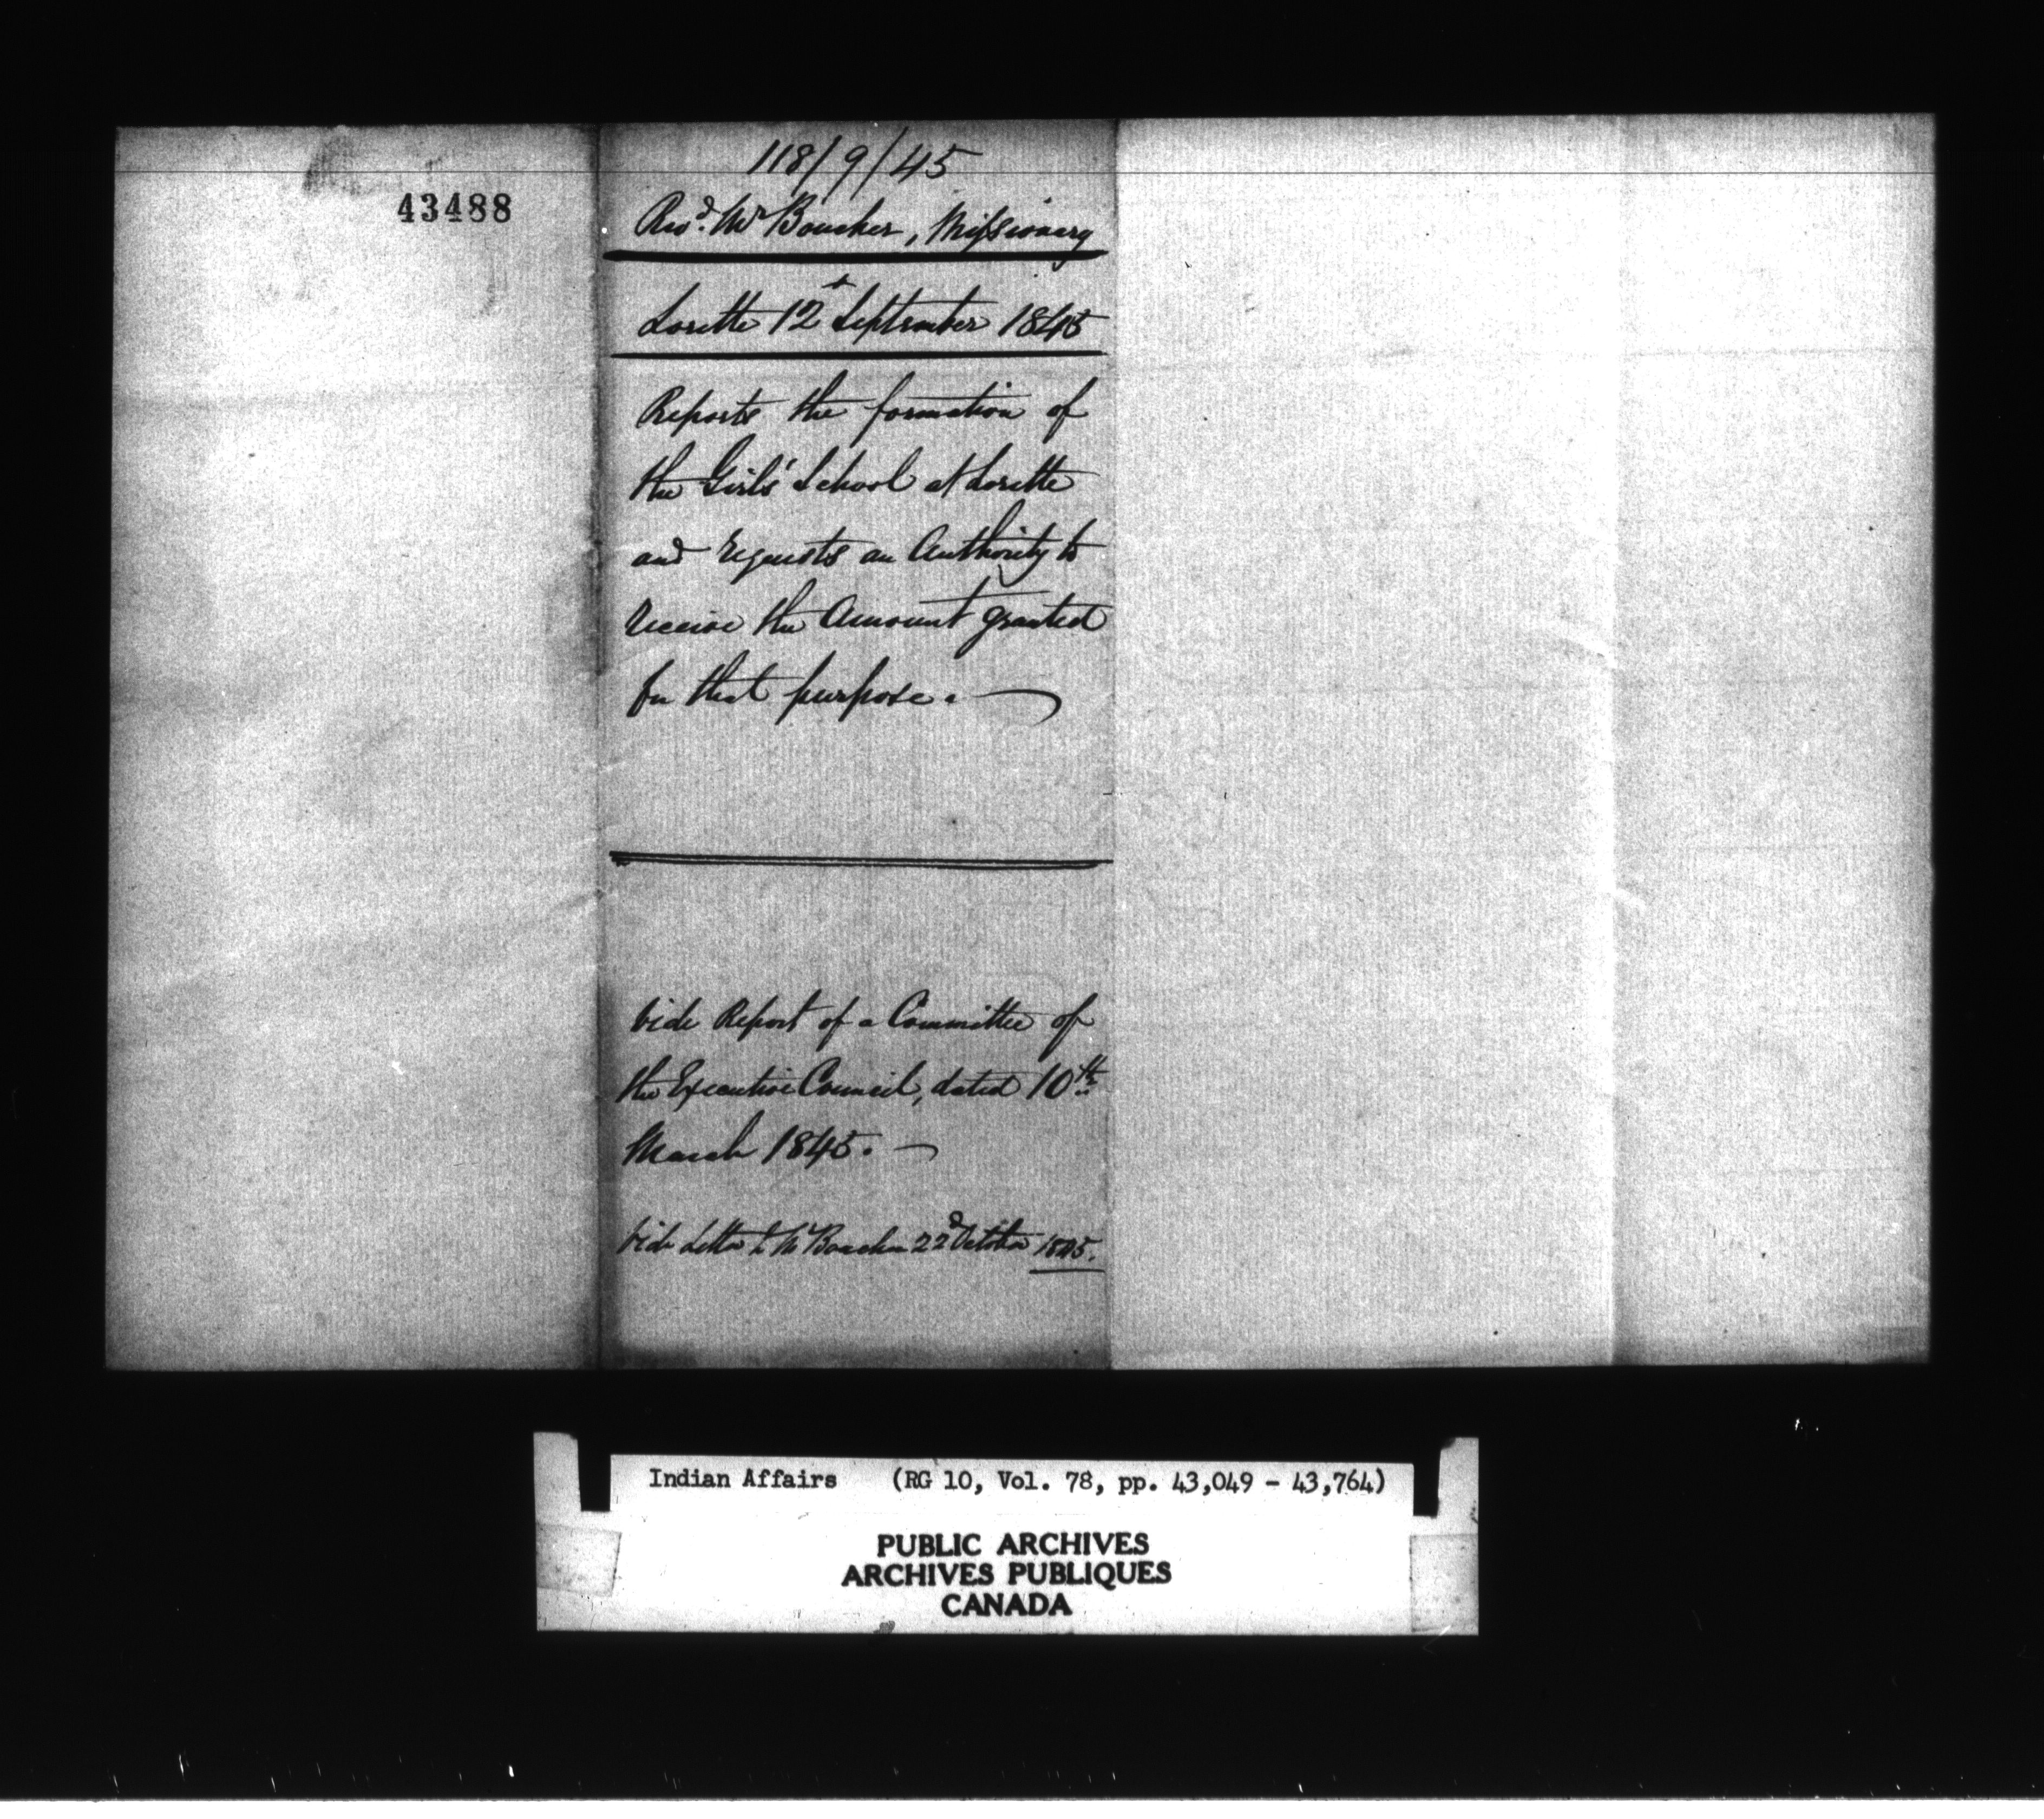 118/9/45
43488
Revd. Mr Boucher, Missionary
Lorette 12t September 1845
Reports the formation of
the Girls' School at Lorette
and requests an Authority to
receive the Amount granted
for that purpose.
Vide Report of a Committee of
the Executive Council, dated 10th
March 1845.
Vide Letter to Mr Boucher 22d October 1845.
Indian Affairs (RG 10, Vol. 78, pp. 43,049 - 43,764)
PUBLIC ARCHIVES
ARCHIVES PUBLIQUES
CANADA